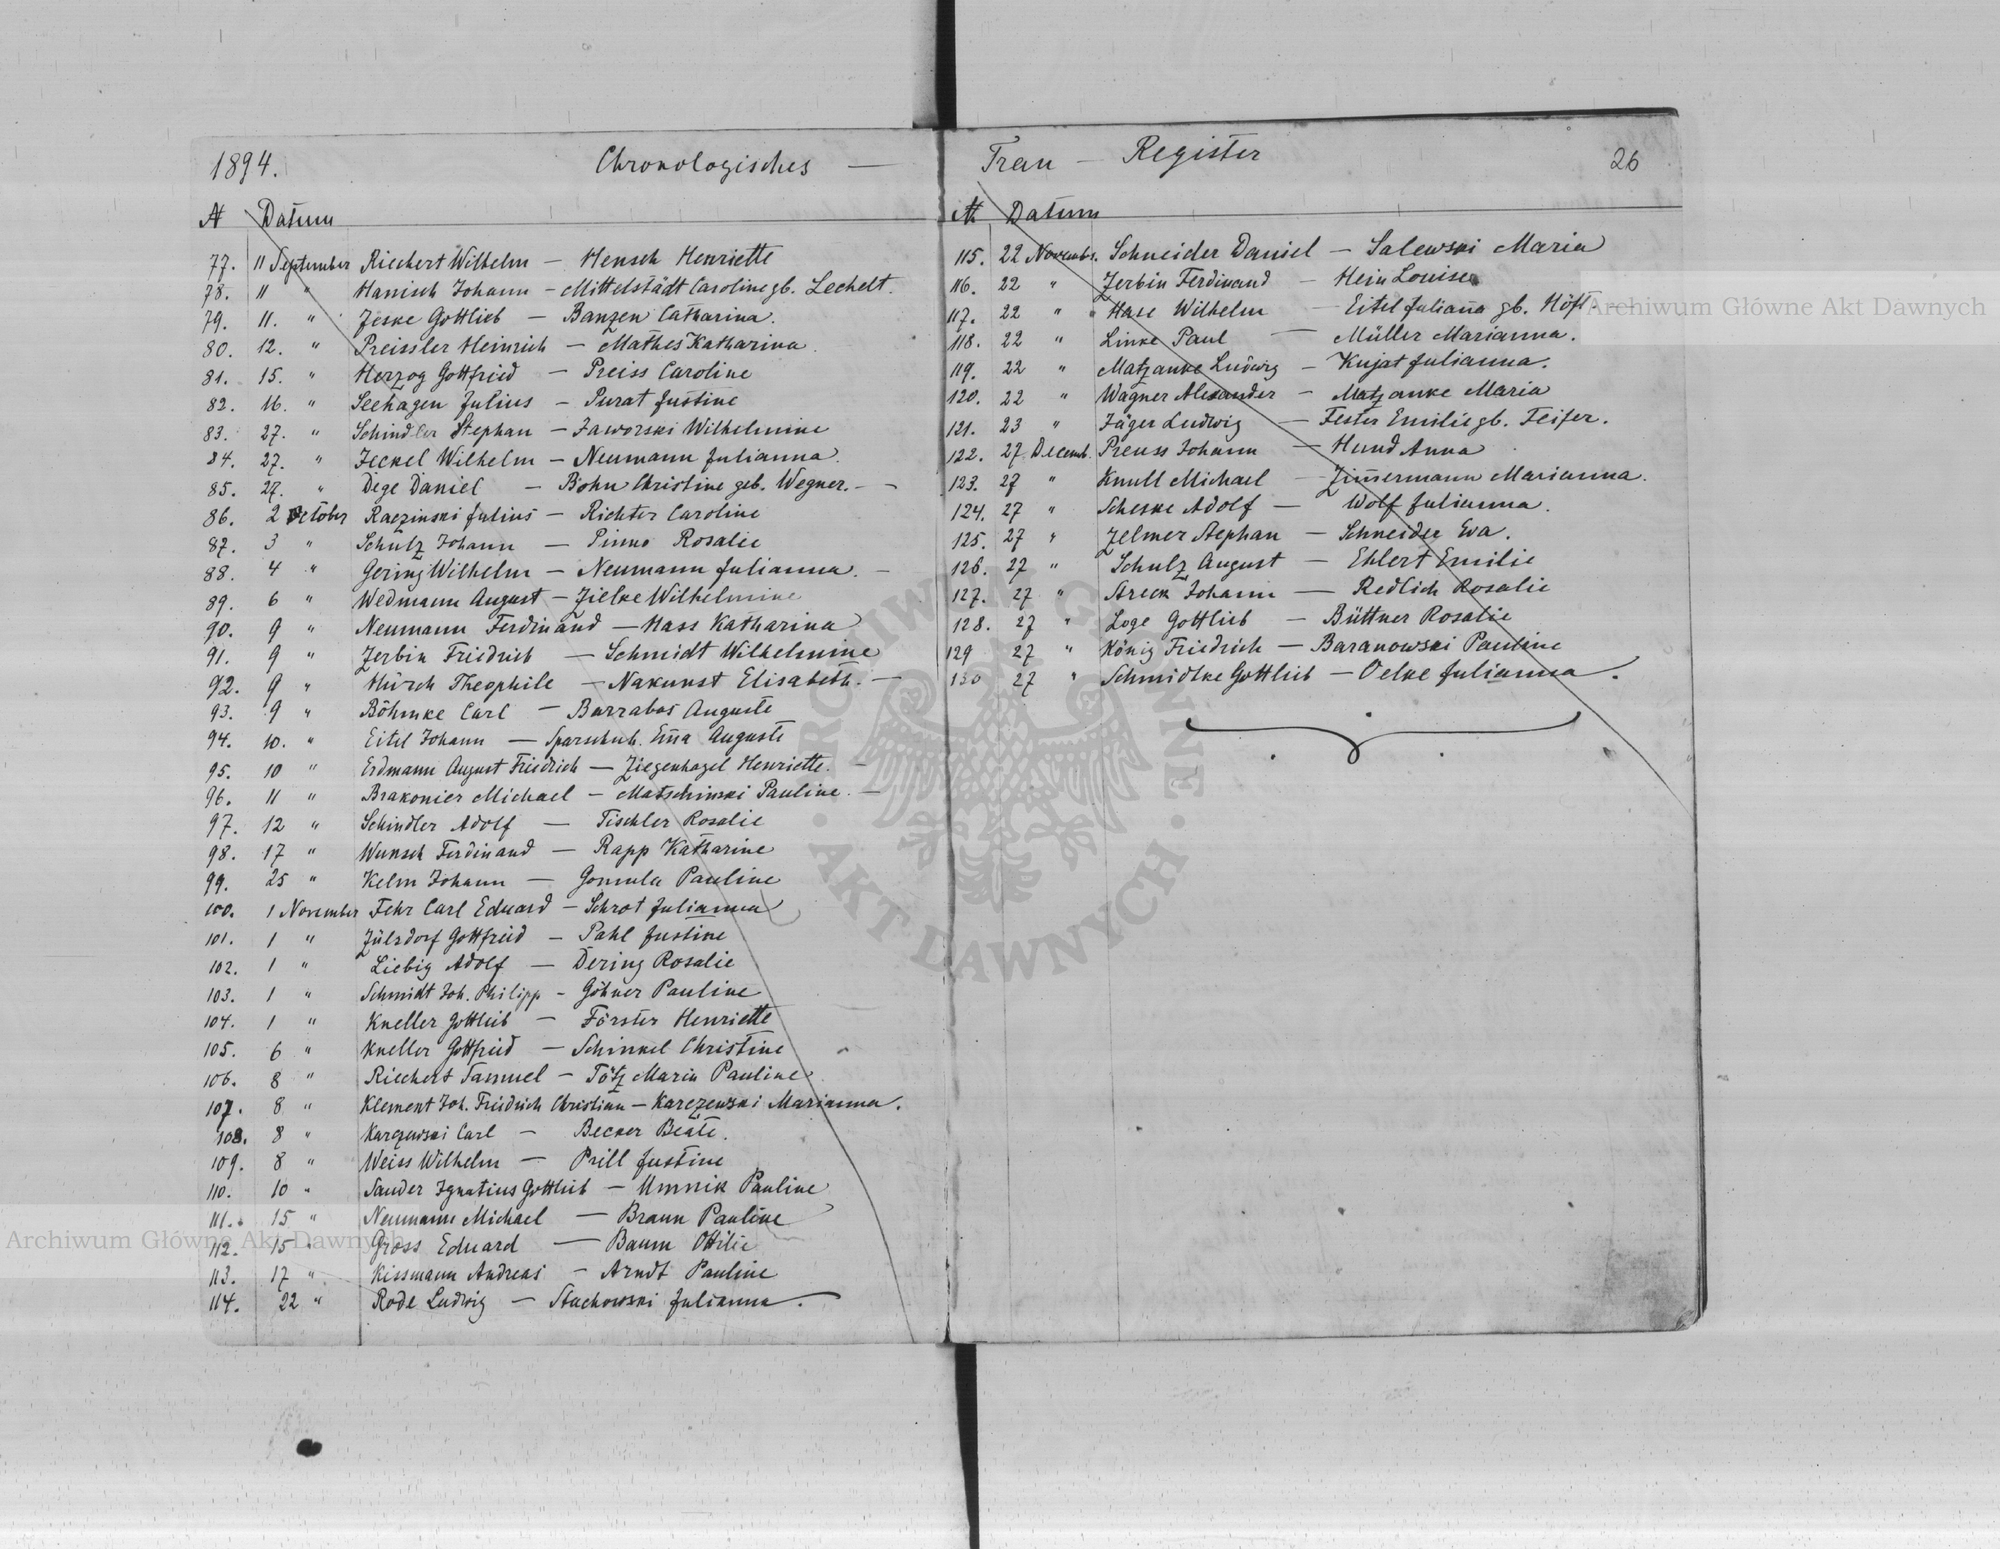 1894. Chronologisches —
№ Datum
77. 11 September Riechert Wilhelm — Hensch Henriette
78. 11 " Hanisch Johann — Mittelstädt Caroline gb. Lechelt.
79. 11. " Jeske Gottlieb — Banzen Catharina.
80. 12. " Preissler Heinrich — Mathes Katharina.
81. 15. " Herzog Gottfried — Preiss Caroline
82. 16. " Seehagen Julius — Purat Justine
83. 27. " Schindler Stephan — Jaworski Wilhelmine
84. 27. " Jeckel Wilhelm — Neumann Julianna.
85. 27. " Dege Daniel — Bohn Christine geb. Wegner. — —
86. 2 October Raczinski Julius — Richter Caroline
87. 3 " Schulz Johann — Pinno Rosalie
88. 4 " Gering Wilhelm — Neumann Julianna. —
89. 6 " Wedmann August — Zielke Wilhelmine
90. 9 " Neumann Ferdinand — Hass Katharina
91. 9 " Zerbin Friedrich — Schmidt Wilhelmine
92. 9 " Hürch Theophile — Nakunst Elisabeth. —
93. 9 " Böhmke Carl — Barrabas Auguste
94. 10. " Eitel Johann — Sparschuh Em̄a Auguste
95. 10 " Erdmann August Friedrich — Ziegenhagel Henriette. —
96. 11 " Brakonier Michael — Matschinski Pauline. —
97. 12 " Schindler Adolf — Tischler Rosalie
98. 17 " Wunsch Ferdinand — Rapp Katharine
99. 25 " Kelm Johann — Gomula Pauline
100. 1 November Fehr Carl Eduard — Schrot Julianna
101. 1 " Zülsdorf Gottfried — Pahl Justine
102. 1 " Liebig Adolf — Dering Rosalie
103. 1 " Schmidt Joh. Philipp — Göhner Pauline
104. 1 " Kneller Gottlieb — Förster Henriette
105. 6 " Kneller Gottfried — Schinkel Christine
106. 8 " Riechert Samuel — Tötz Maria Pauline
107. 8 " Klement Joh. Friedrich Christian — Karczewski Marianna.
108. 8 " Karczewski Carl — Becker Beate.
109. 8 " Weiss Wilhelm — Prill Justine
110. 10 " Sander Ignatius Gottlieb — Umnik Pauline
111. 15 " Neumann Michael — Braun Pauline
112. 15 " Gross Eduard — Baum Ottilie
113. 17 " Kissmann Andreas — Arndt Pauline
114. 22 " Rode Ludwig — Stachowski Julianna.
Trau — Register 26
№ Datum
115. 22 Novembr. Schneider Daniel — Salewski Maria
116. 22 " Zerbin Ferdinand — Hein Louise
117. 22 " Hase Wilhelm — Eitel Juliana gb. Höft.
118. 22 " Linke Paul — Müller Marianna.
119. 22 " Matzanke Ludwig — Kujat Julianna.
120. 22 " Wagner Alexander — Matzanke Maria
121. 23 " Jäger Ludwig — Fester Emilie gb. Feifer.
122. 27 Decemb. Preuss Johann — Hund Anna
123. 27 " Knull Michael — Zim̄ermann Marianna.
124. 27 " Scheske Adolf — Wolf Julianna.
125. 27 " Zelmer Stephan — Schneider Eva.
126. 27 " Schulz August — Ehlert Emilie
127. 27 " Streck Johann — Redlich Rosalie
128. 27 " Loge Gottlieb — Büttner Rosalie
129 27 " König Friedrich — Baranowski Pauline
130 27 " Schmidtke Gottlieb — Oelke Julianna.
Archiwum Główne Akt Dawnych
ARCHIWUM GŁÓWNE · AKT DAWNYCH ·
Archiwum Główne Akt Dawnych